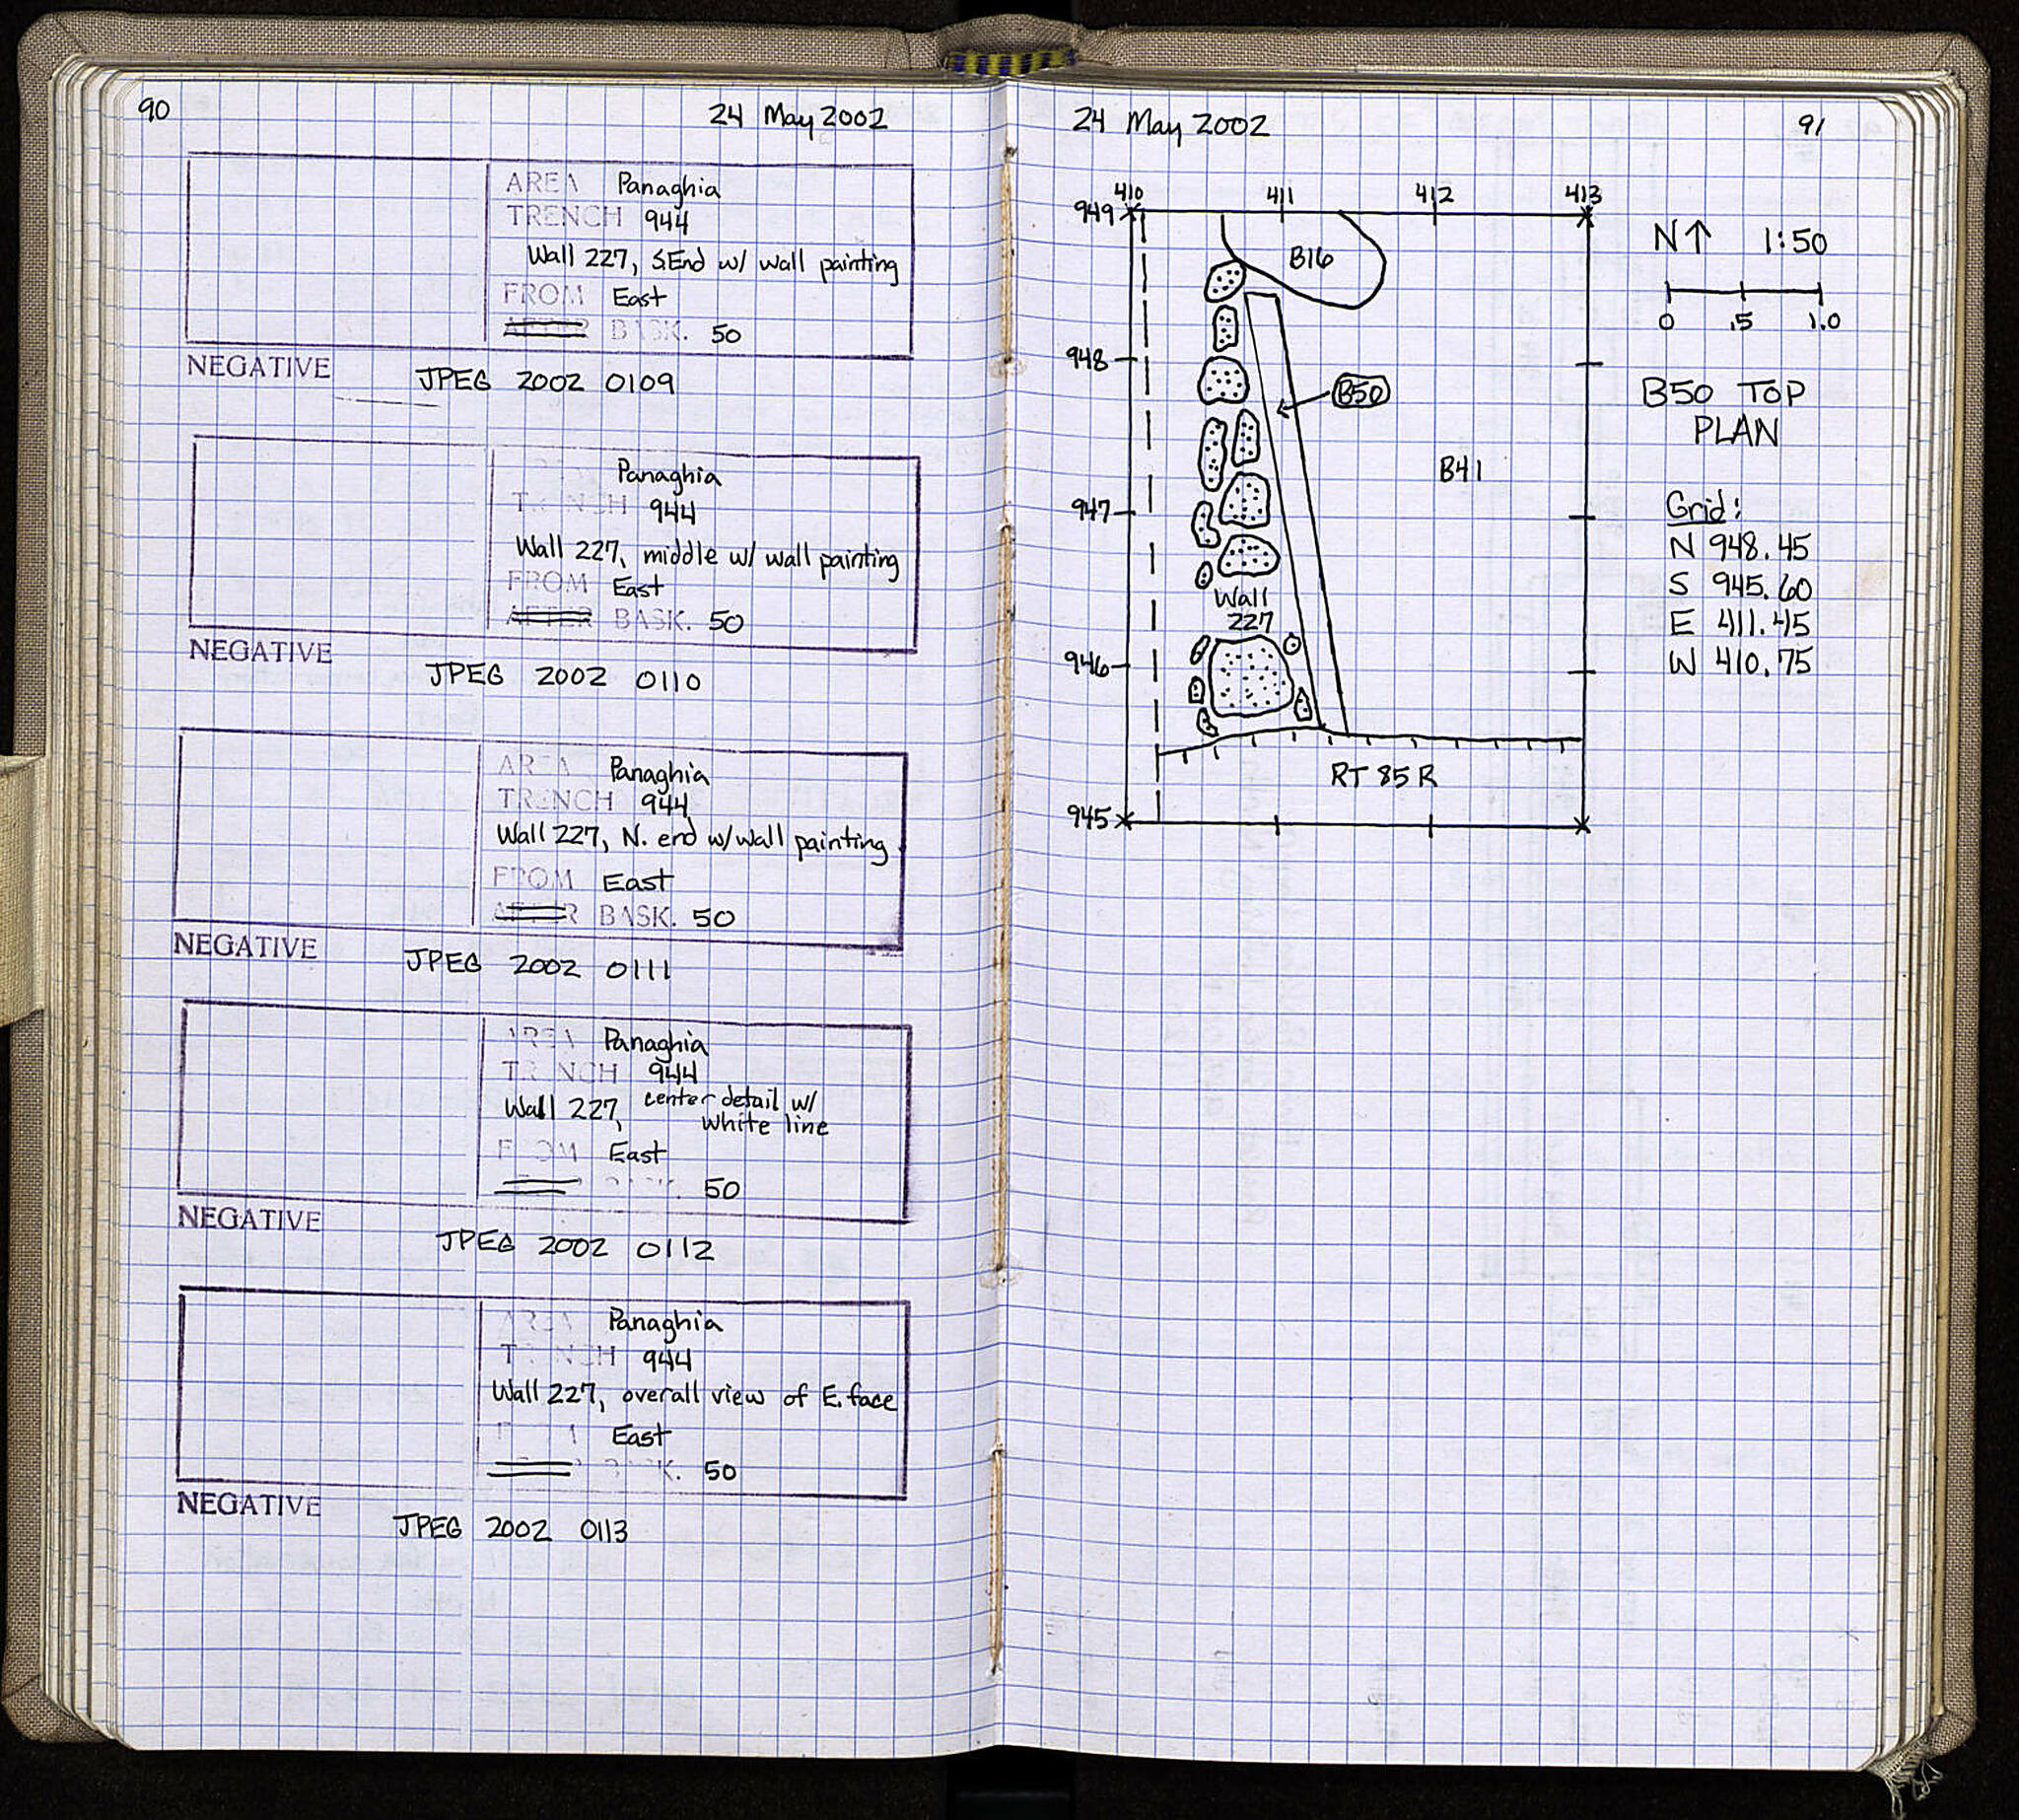 90
24 May 2002
AREA Panaghia
TRENCH 944
Wall 227, S. End w/ wall painting
FROM East
AFTER BASK. 50
NEGATIVE
JPEG 2002 0109
Panaghia
TRENCH 944
Wall 227, middle w/ wall painting
FROM East
AFTER BASK. 50
NEGATIVE
JPEG 2002 0110
AREA Panaghia
TRENCH 944
Wall 227, N. end w/ wall painting
FROM East
AFTER BASK. 50
NEGATIVE
JPEG 2002 0111
AREA Panaghia
TRENCH 944
Wall 227, center detail w/
white line
FROM East
BASK. 50
NEGATIVE
JPEG 2002 0112
AREA Panaghia
TRENCH 944
Wall 227, overall view of E. face
FROM East
BASK. 50
NEGATIVE
JPEG 2002 0113
24 May 2002
91
410 411 412 413
949
B16
948
B50
B41
947
Wall
227
946
RT 85 R
945
N↑ 1:50
0 .5 1.0
B50 TOP
PLAN
Grid:
N 948.45
S 945.60
E 411.45
W 410.75